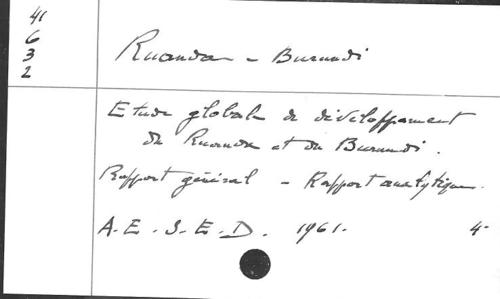 41
6
3
2
Ruanda - Burundi
Etude globale de développement
du Ruanda et du Burundi.
Rapport général - Rapport analytique.
A.E.S.E.D. 1961. 4.